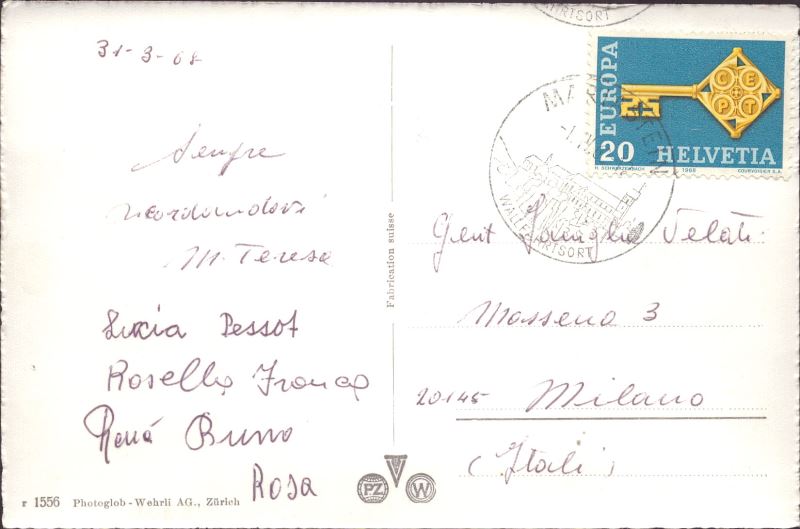 31-3-68
Sempre
ricordandovi
M. Teresa
Lucia Pessot
Rosella Franca
Renà Bruno
Rosa
r 1556 Photoglob-Wehrli AG., Zürich
Fabrication suisse
PZ W
WALLFAHRTSORT
MARIASTEIN
WALLFAHRTSORT
EUROPA
CEPT
20 HELVETIA
H. SCHWARZENBACH 1968 COURVOISIER S.A.
Gent Famiglia Velati
Massena 3
20145 Milano
(Itali)